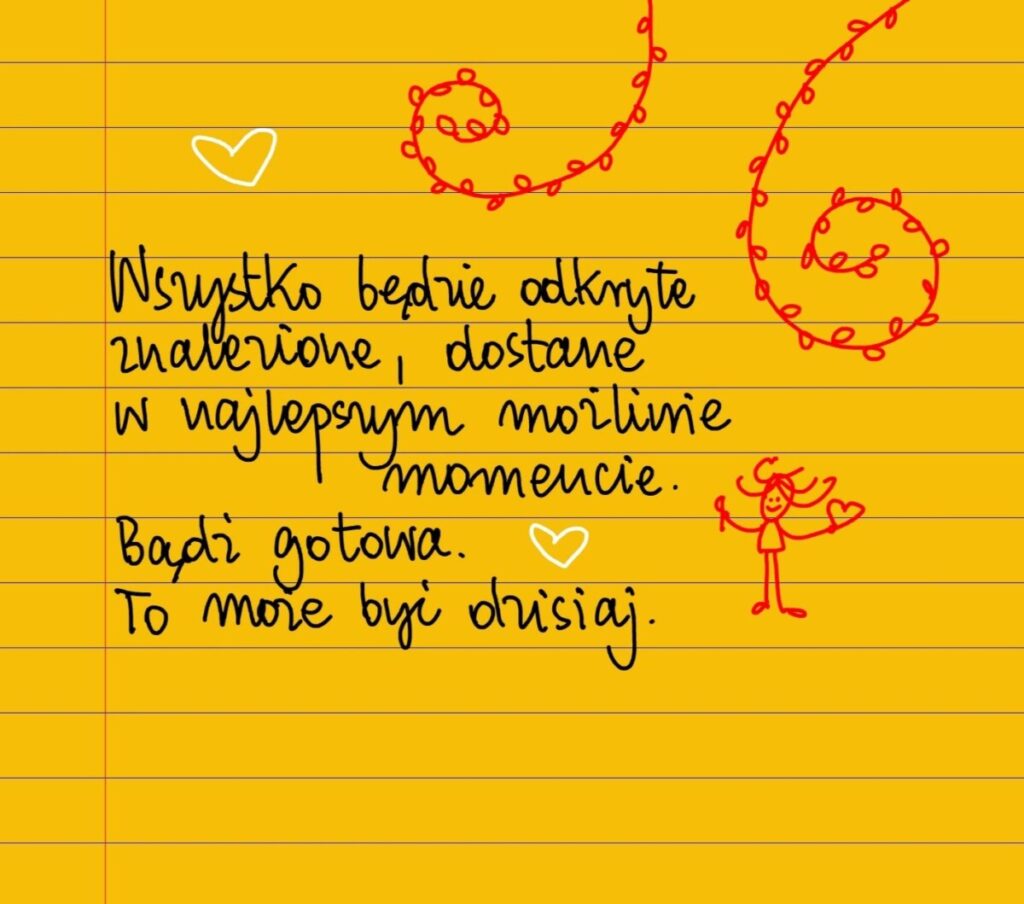 Wszystko będzie odkryte
znalezione, dostane
w najlepszym możliwie
momencie.
Bądź gotowa.
To może być dzisiaj.